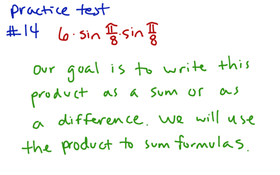 Practice test
#14 6 · sin π/8 · sin π/8
Our goal is to write this
product as a sum or as
a difference. We will use
the product to sum formulas.